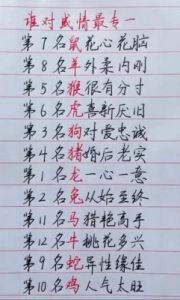 谁对感情最专一
第7名鼠花心花脑
第8名羊外柔内刚
第5名猴很有分寸
第6名虎喜新厌旧
第3名狗对爱忠诚
第4名猪婚后老实
第1名龙一心一意
第2名兔从始至终
第11名马猎艳高手
第12名牛桃花多兴
第9名蛇异性缘佳
第10名鸡人气太旺